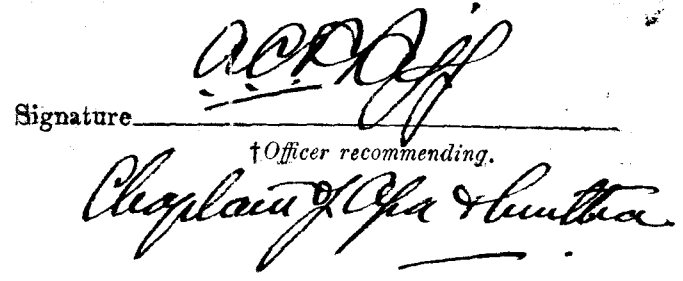 A C R
Signature
†Officer recommending.
Chaplain of Agra & Muttra